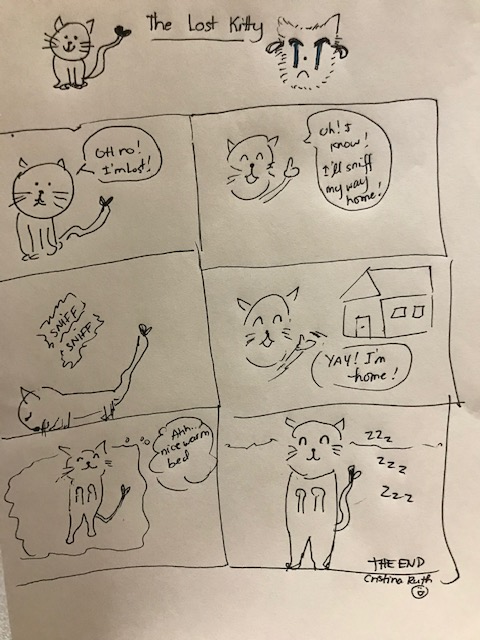 The Lost Kitty
OH no!
I'm Lost!
Oh! I
know!
I'll sniff
my way
home!
SNIFF
SNIFF
YAY! I'm
home!
Ahh..
nice warm
bed
zzz
zzz
zzz
THE END
Cristina Ruth